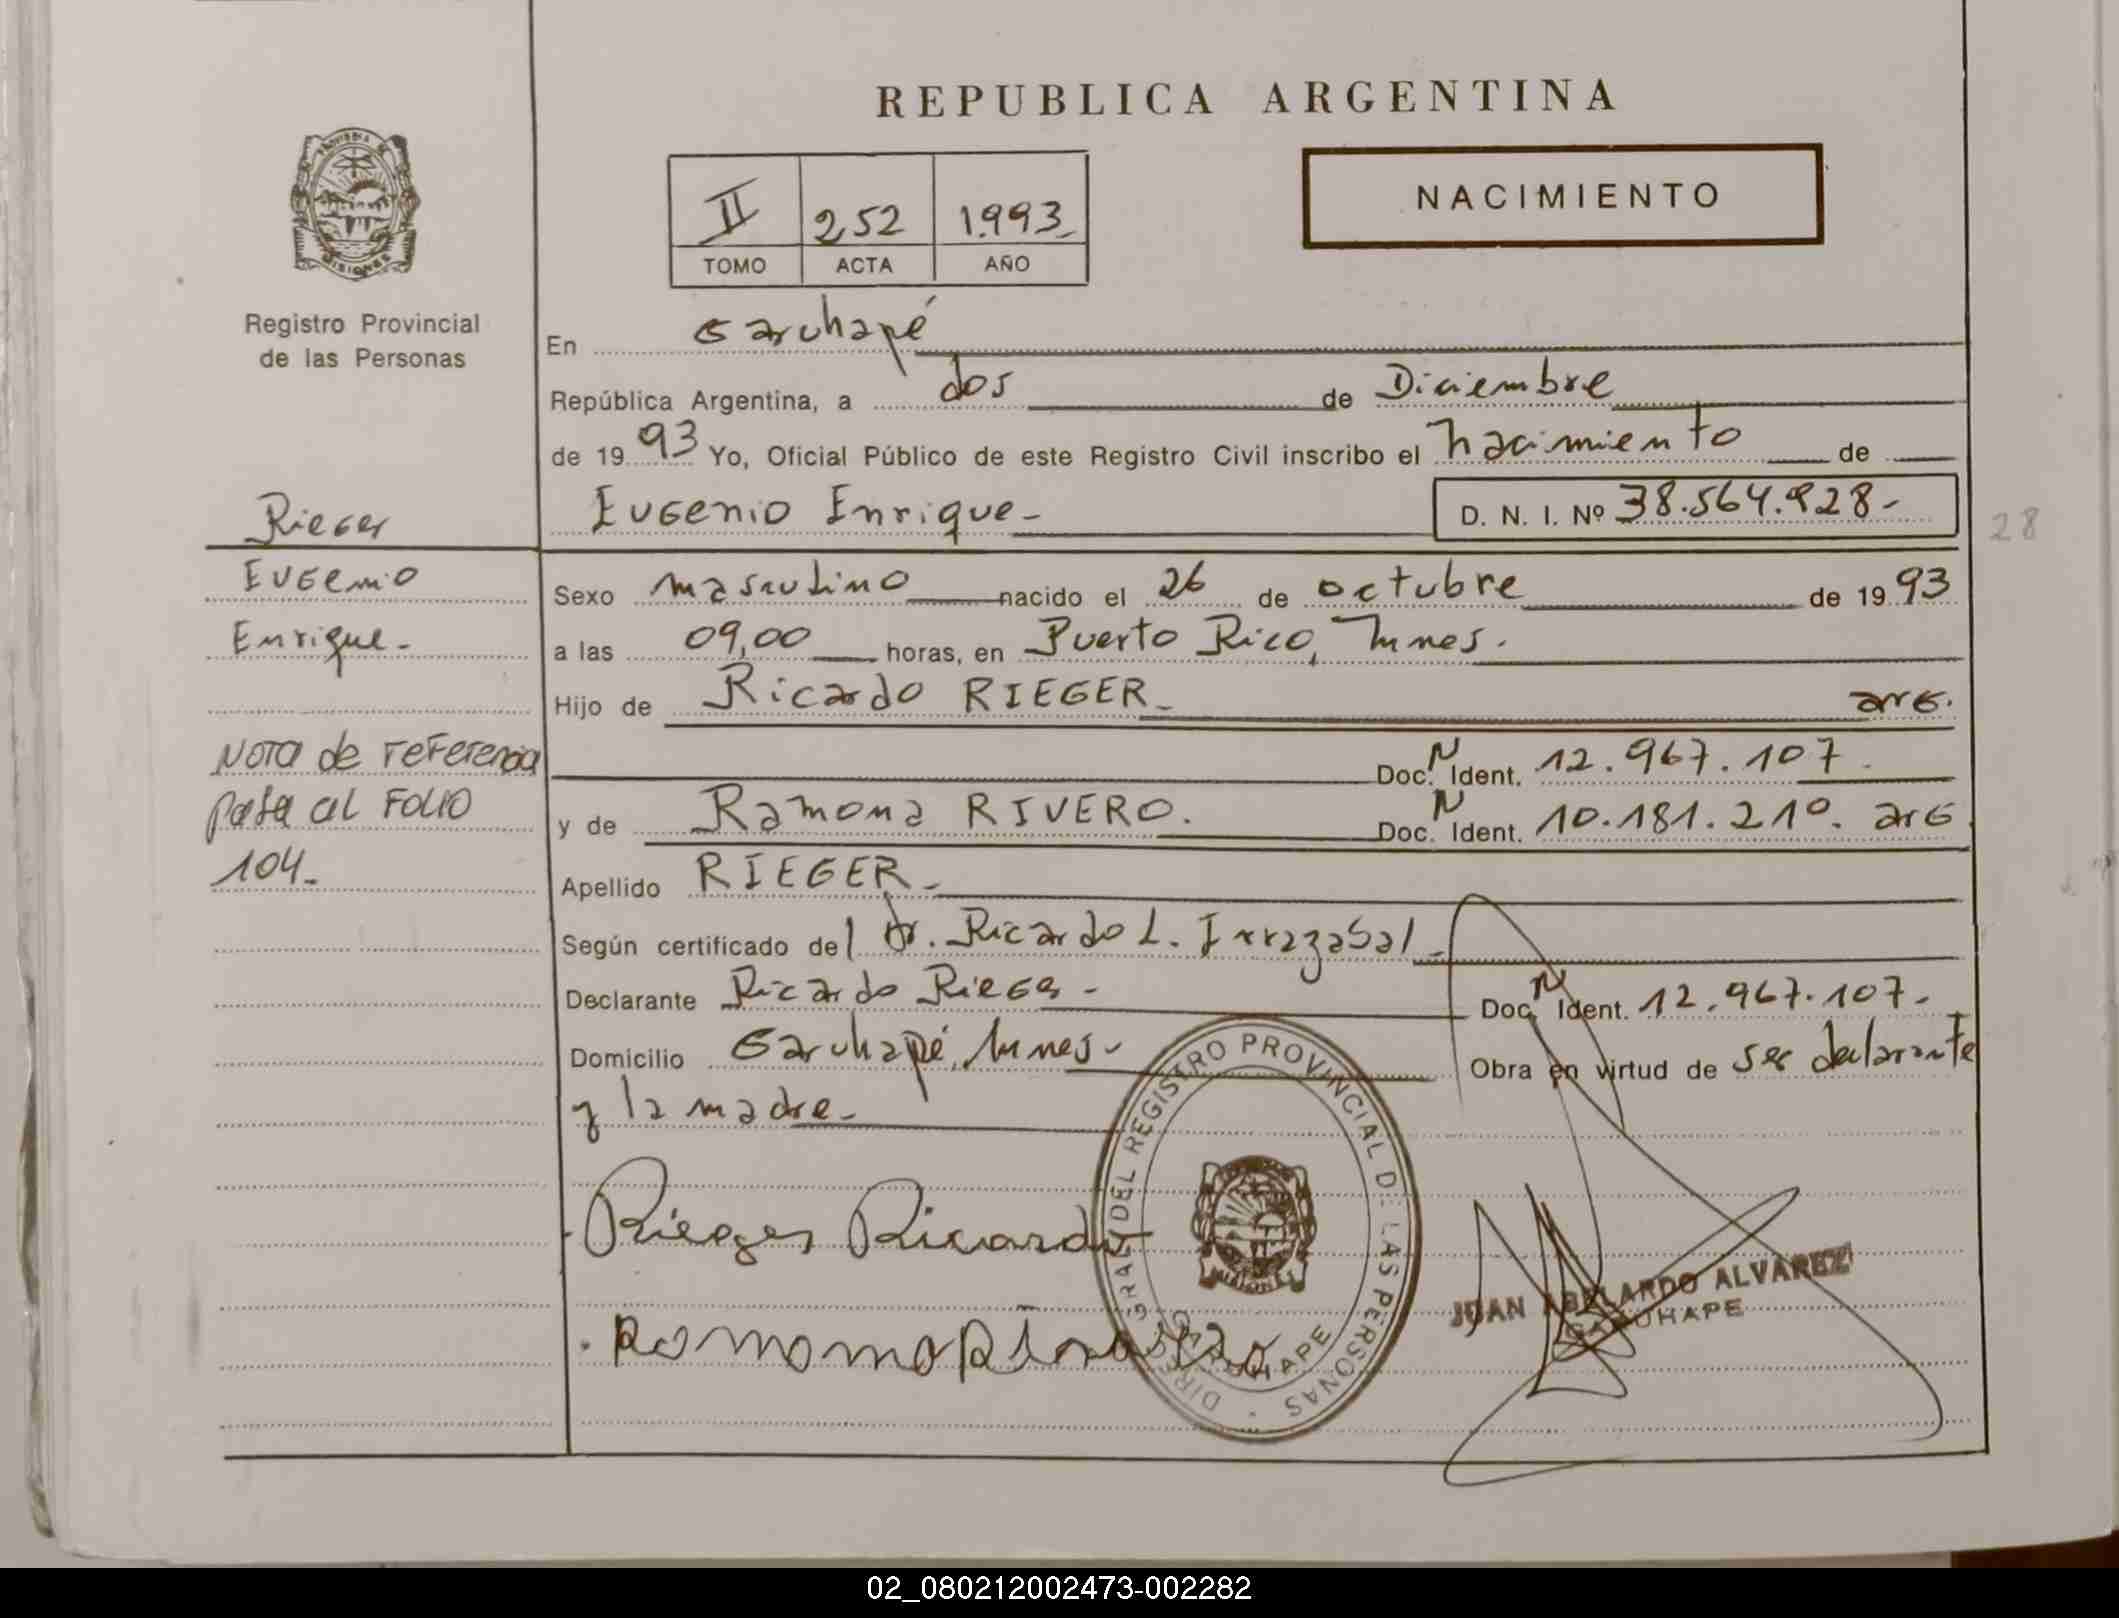 REPUBLICA ARGENTINA
NACIMIENTO
II 252 1.993
TOMO ACTA AÑO
PROVINCIA DE MISIONES
Registro Provincial
de las Personas
Rieger
Eugenio
Enrique.-
Nota de referencia
pasa al FOLIO
104.-
En Garuhapé
República Argentina, a dos de Diciembre
de 1993 Yo, Oficial Público de este Registro Civil inscribo el nacimiento de
Eugenio Enrique.- D. N. I. Nº 38.564.928.-
28
Sexo masculino nacido el 26 de octubre de 1993
a las 09,00 horas, en Puerto Rico,
Hijo de Ricardo RIEGER.- arg.
Doc. N Ident. 12.967.107.
y de Ramona RIVERO. Doc. N Ident. 10.181.210. arg
Apellido RIEGER.-
Según certificado del Dr. Ricardo L. Irrazabal.-
Declarante Ricardo Rieger.- Doc. N Ident. 12.967.107.-
Domicilio Garuhapé, Obra en virtud de ser declarante
y la madre.-
Rieger Ricardo
DIREC. GRAL. DEL REGISTRO PROVINCIAL DE LAS PERSONAS
GARUHAPE
MISIONES
JUAN ABELARDO ALVAREZ
GARUHAPE
02_080212002473-002282